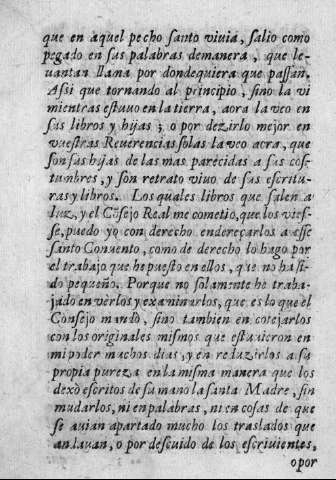 que en aquel pecho santo viuia, salio como
pegado en sus palabras demanera, que le-
uantan llama por dondequiera que passan.
Assi que tornando al principio, sino la vi
mientras estuuo en la tierra, aora la veo en
sus libros y hijas; o por dezirlo mejor en
vuestras Reuerencias solas la veo aora, que
son sus hijas de las mas parecidas a sus cos-
tumbres, y son retrato viuo de sus escritu-
ras y libros. Los quales libros que salen a
luz, y el Cõsejo Real me cometio, que los vies-
se, puedo yo con derecho endereçarlos a esse
santo Conuento, como de derecho lo hago por
el trabajo que he puesto en ellos, que no ha si-
do pequeño. Porque no solamente he traba-
jado en verlos y examinarlos, que es lo que el
Consejo mandò, sino tambien en cotejarlos
con los originales mismos que estuuieron en
mi poder muchos dias, y en reduzirlos a su
propia pureza en la misma manera que los
dexò escritos de su mano la santa Madre, sin
mudarlos, ni en palabras, ni en cosas de que
se auian apartado mucho los traslados que
andauan, o por descuido de los escriuientes,
opor